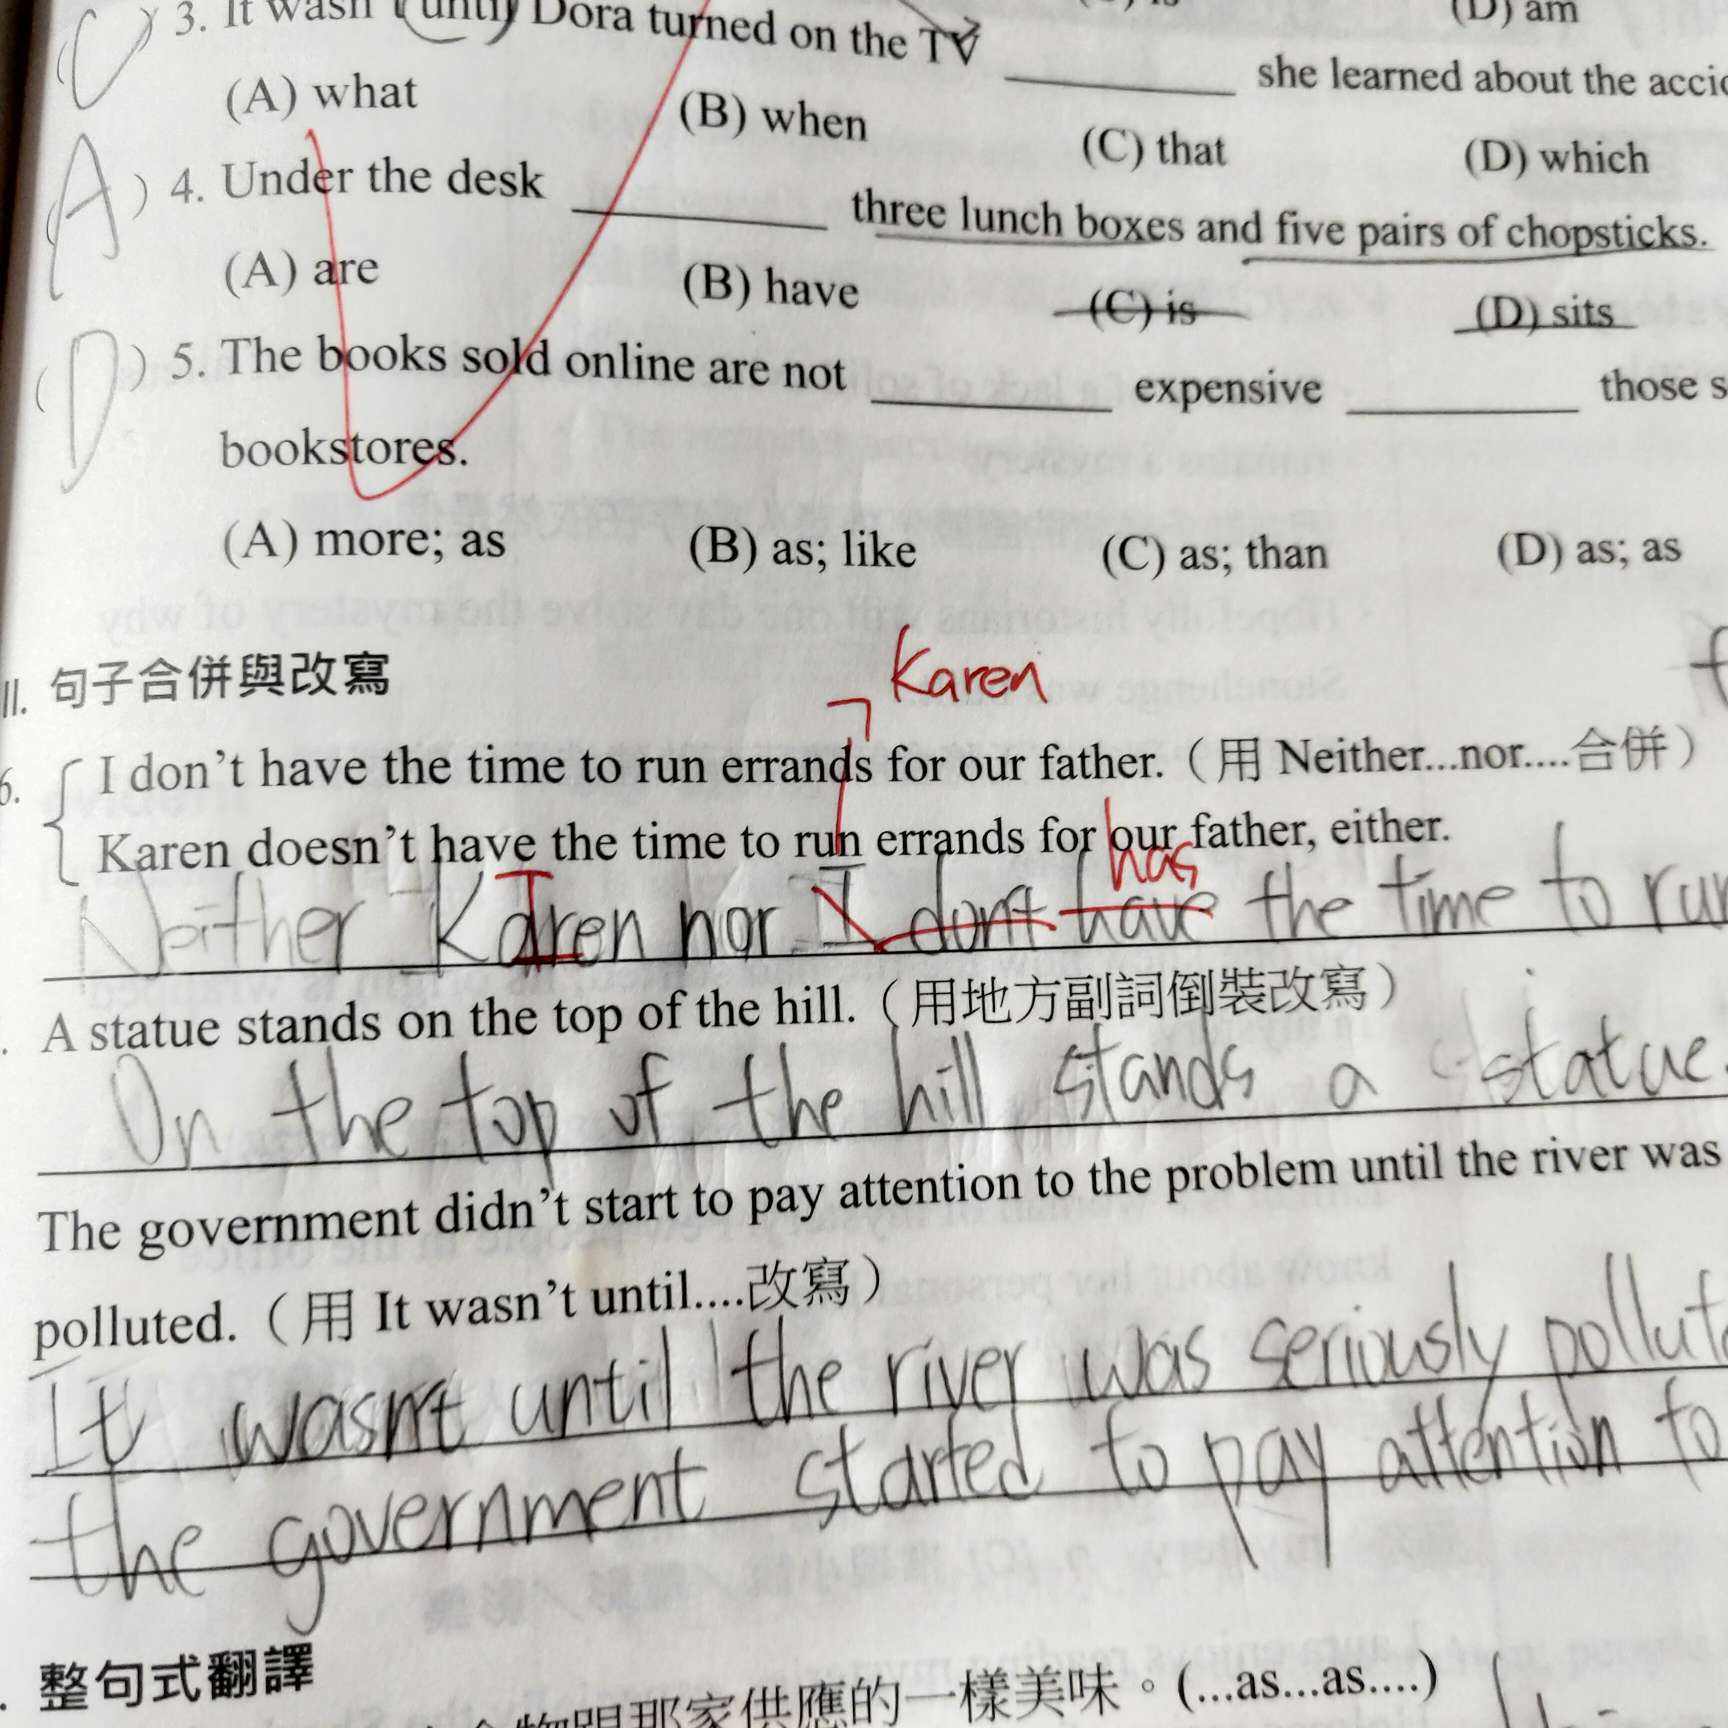 (D) am
(C) 3. It wasn't until Dora turned on the TV ________ she learned about the
(A) what (B) when (C) that (D) which
(A) 4. Under the desk ________ three lunch boxes and five pairs of chopsticks.
(A) are (B) have (C) is (D) sits
(D) 5. The books sold online are not ________ expensive ________ those
bookstores.
(A) more; as (B) as; like (C) as; than (D) as; as
II. 句子合併與改寫
Karen
6. I don't have the time to run errands for our father.（用 Neither...nor....合併）
Karen doesn't have the time to run errands for our father, either.
I has
Neither Karen nor I don't have the time to run
. A statue stands on the top of the hill.（用地方副詞倒裝改寫）
On the top of the hill stands a statue.
The government didn't start to pay attention to the problem until the river was
polluted.（用 It wasn't until....改寫）
It wasn't until the river was seriously
the government started to pay attention to
. 整句式翻譯
那家供應的一樣美味。(...as...as....)